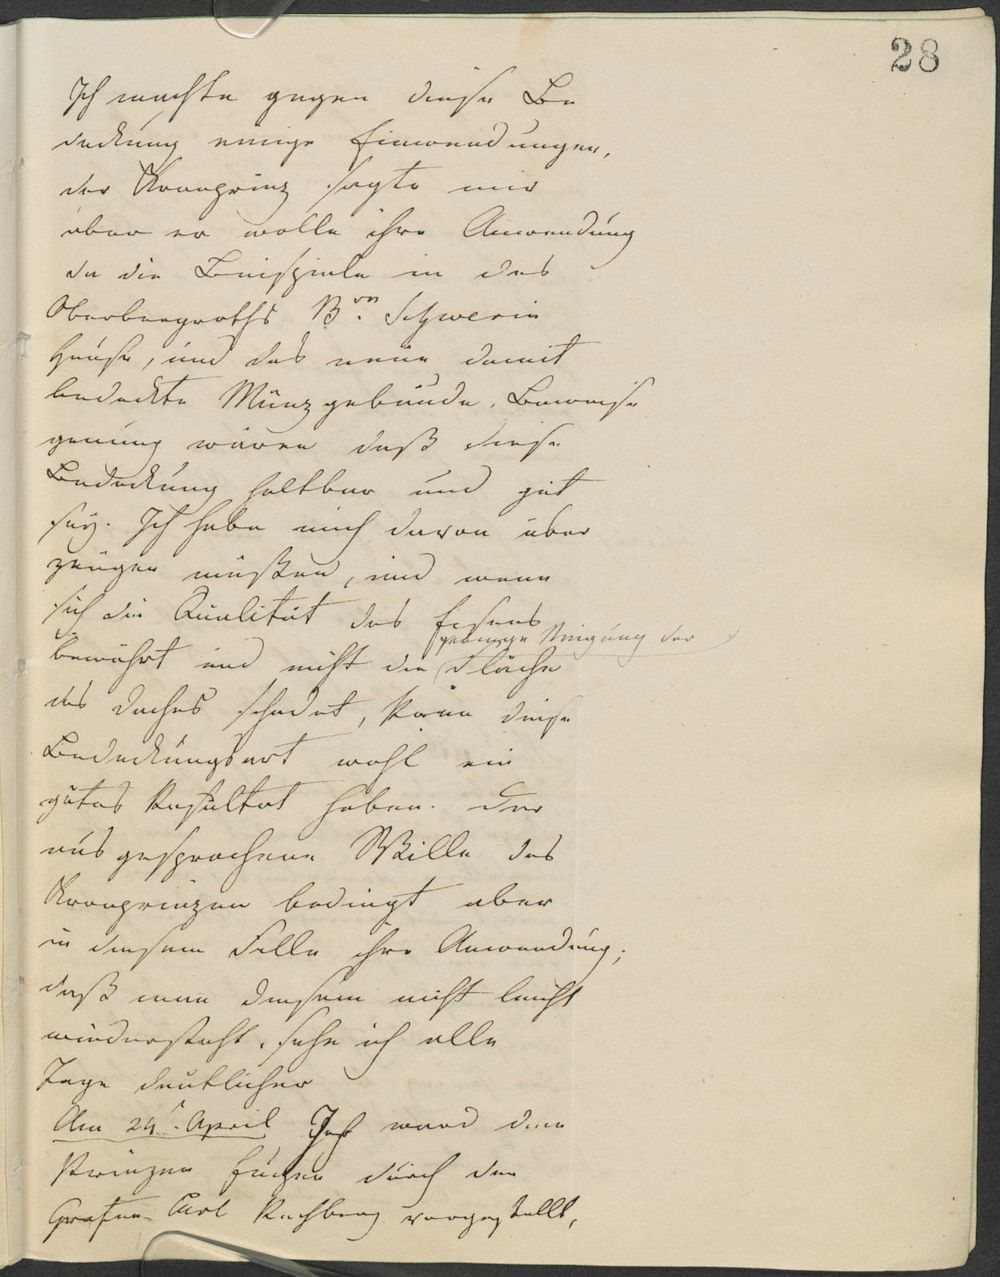 28
Ich machte gegen diese Be
deckung einige Einwendungen,
der Kronprinz sagte mir
aber er wolle ihre Anwendung
da die Beispiele in des
Oberbergraths Bon. Schwerin
Hause, und das neue damit
bedeckte Münzgebäude, Beweise
genung wären daß diese
Bedeckung haltbar und gut
sey. Ich habe mich davon über
zeugen müßen, und wenn
sich die Qualität des Eisens
geringe Neigung der
bewährt und nicht die Fläche
des Daches schadet, kann diese
Bedeckungsart wohl ein
gutes Resultat haben. Der
ausgesprochene Wille des
Kronprinzen bedingt aber
in diesem Falle ihre Anwendung;
daß man diesem nicht leicht
wiedersteht, sehe ich alle
Tage deutlicher
Am 24t. April Ich ward dem
Prinzen Eugen durch den
Grafen Carl Rechberg vorgestellt,